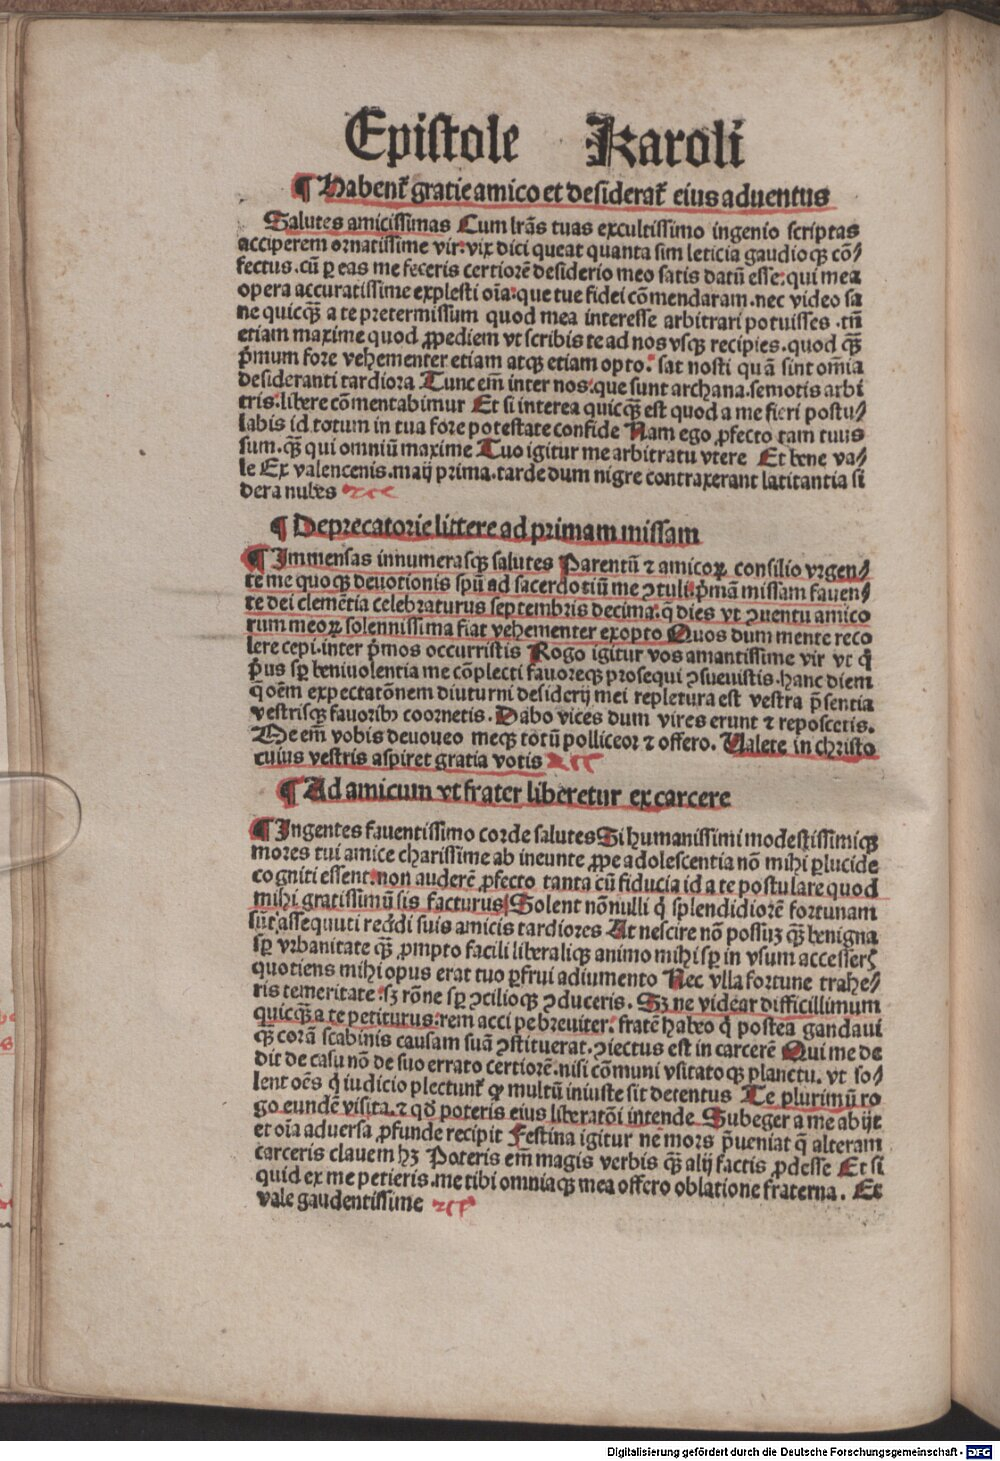 Epistole Karoli
¶ Habent᷑ gratie amico et desiderat᷑ eius aduentus
Salutes amicissimas Cum lr̃as tuas excultissimo ingenio scriptas
acciperem ornatissime vir. vix dici queat quanta sim leticia gaudioqꝫ cõ/
fectus. cũ ꝑ eas me feceris certiorẽ desiderio meo satis datũ esse: qui mea
opera accuratissime explesti oĩa: que tue fidei cõmendaram. nec video sa
ne quicqꝫ̃ a te pretermissum quod mea interesse arbitrari potuisses. tñ
etiam maxime quod ꝓpediem vt scribis te ad nos vsqꝫ recipies. quod qꝫ̃
p̃mum fore vehementer etiam atqꝫ etiam opto. sat nosti quã sint om̃ia
desideranti tardiora Tunc em̃ inter nos. que sunt archana. semotis arbi
tris. libere cõmentabimur Et si interea quicqꝫ̃ est quod a me fieri postu/
labis id totum in tua fore potestate confide Nam ego ꝓfecto tam tuus
sum. qꝫ̃ qui omniũ maxime Tuo igitur me arbitratu vtere Et bene va/
le Ex valencenis. maij prima. tarde dum nigre contraxerant latitantia si
dera nubes
¶ Deprecatorie littere ad primam missam
¶ Immensas innumerasqꝫ salutes Parentũ ⁊ amicoꝝ consilio vrgen/
te me quoqꝫ deuotionis spũ ad sacerdotiũ me ꝯtuli. p̃mã missam fauen/
te dei clemẽtia celebraturus septembris decima. q̃ dies vt ꝯuentu amico
rum meoꝝ solennissima fiat vehementer exopto Quos dum mente reco
lere cepi. inter p̃mos occurristis Rogo igitur vos amantissime vir vt q̃
p̃us sꝑ beniuolentia me cõplecti fauoreqꝫ prosequi ꝯsueuistis. hanc diem
q̃ oẽm expectatõnem diuturni desiderij mei repletura est vestra p̃sentia
vestrisqꝫ fauoribꝫ coornetis. Dabo vices dum vires erunt ⁊ reposcetis.
Me em̃ vobis deuoueo meqꝫ totũ polliceor ⁊ offero. Valete in christo
cuius vestris aspiret gratia votis
¶ Ad amicum vt frater liberetur ex carcere
¶ Ingentes fauentissimo corde salutes Si humanissimi modestissimiqꝫ
mores tui amice charissime ab ineunte ꝓpe adolescentia nõ mihi ꝑlucide
cogniti essent. non auderẽ ꝓfecto tanta cũ fiducia id a te postulare quod
mihi gratissimũ sis facturus Solent nõnulli q̃ splendidiorẽ fortunam
sũt assequuti reddi suis amicis tardiores At nescire nõ possũꝫ qꝫ̃ benigna
sꝑ vrbanitate qꝫ̃ ꝓmpto facili liberaliqꝫ animo mihi sꝑ in vsum accesseris
quotiens mihi opus erat tuo ꝑfrui adiumento Nec vlla fortune trahe/
ris temeritate. sꝫ rõne sꝑ ꝯcilioqꝫ ꝯduceris. Sꝫ ne videar difficillimum
quicqꝫ̃ a te petiturus: rem accipe breuiter. fratẽ habeo q̃ postea gandaui
qꝫ̃ corã scabinis causam suã ꝯstituerat. ꝯiectus est in carcerẽ Qui me de
dit de casu nõ de suo errato certiorẽ. nisi cõmuni vsitatoqꝫ planctu. vt so/
lent oẽs q̃ iudicio plectunt᷑ qꝫ multũ iniuste sit detentus Te plurimũ ro
go eundẽ visita. ⁊ qd̃ poteris eius liberatõi intende Subeger a me abijt
et oĩa aduersa ꝓfunde recipit Festina igitur ne mors p̃ueniat q̃ alteram
carceris clauem hꝫ Poteris em̃ magis verbis qꝫ̃ alij factis ꝓdesse Et si
quid ex me petieris. me tibi omniaqꝫ mea offero oblatione fraterna. Et
vale gaudentissime
Digitalisierung gefördert durch die Deutsche Forschungsgemeinschaft - DFG